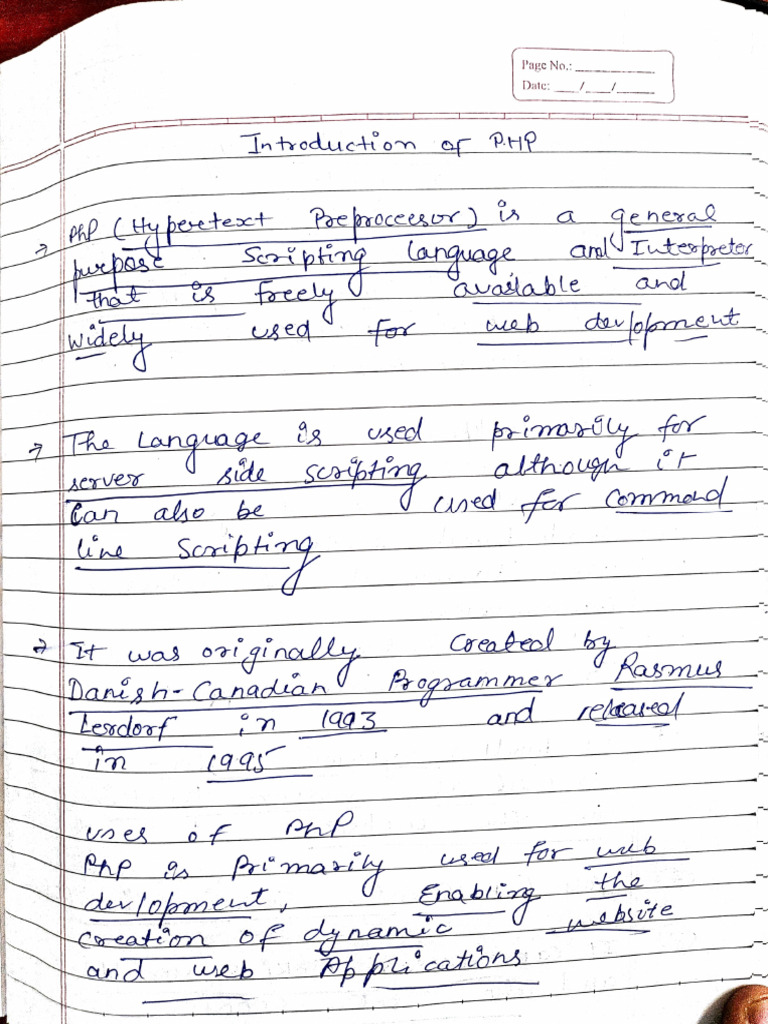 Page No.:
Date: / /
Introduction of PHP
→ PhP (Hyperetext Preproceesor) is a general
purpose Scripting Language and Interpreter
that is freely available and
widely used for web devlopment
→ The Language is used primarily for
server side scripting although it
can also be used for command
line Scripting
→ It was originally Created by
Danish-Canadian Programmer Rasmus
Lerdorf in 1993 and released
in 1995
uses of PhP
PhP is Primarily used for web
devlopment, Enabling the
creation of dynamic website
and web Applications